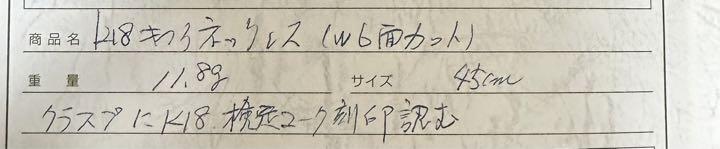 商品名 K18 キヘイネックレス (W6面カット)
重量 11.8g サイズ 45cm
クラスプにK18. 検定マーク刻印認む